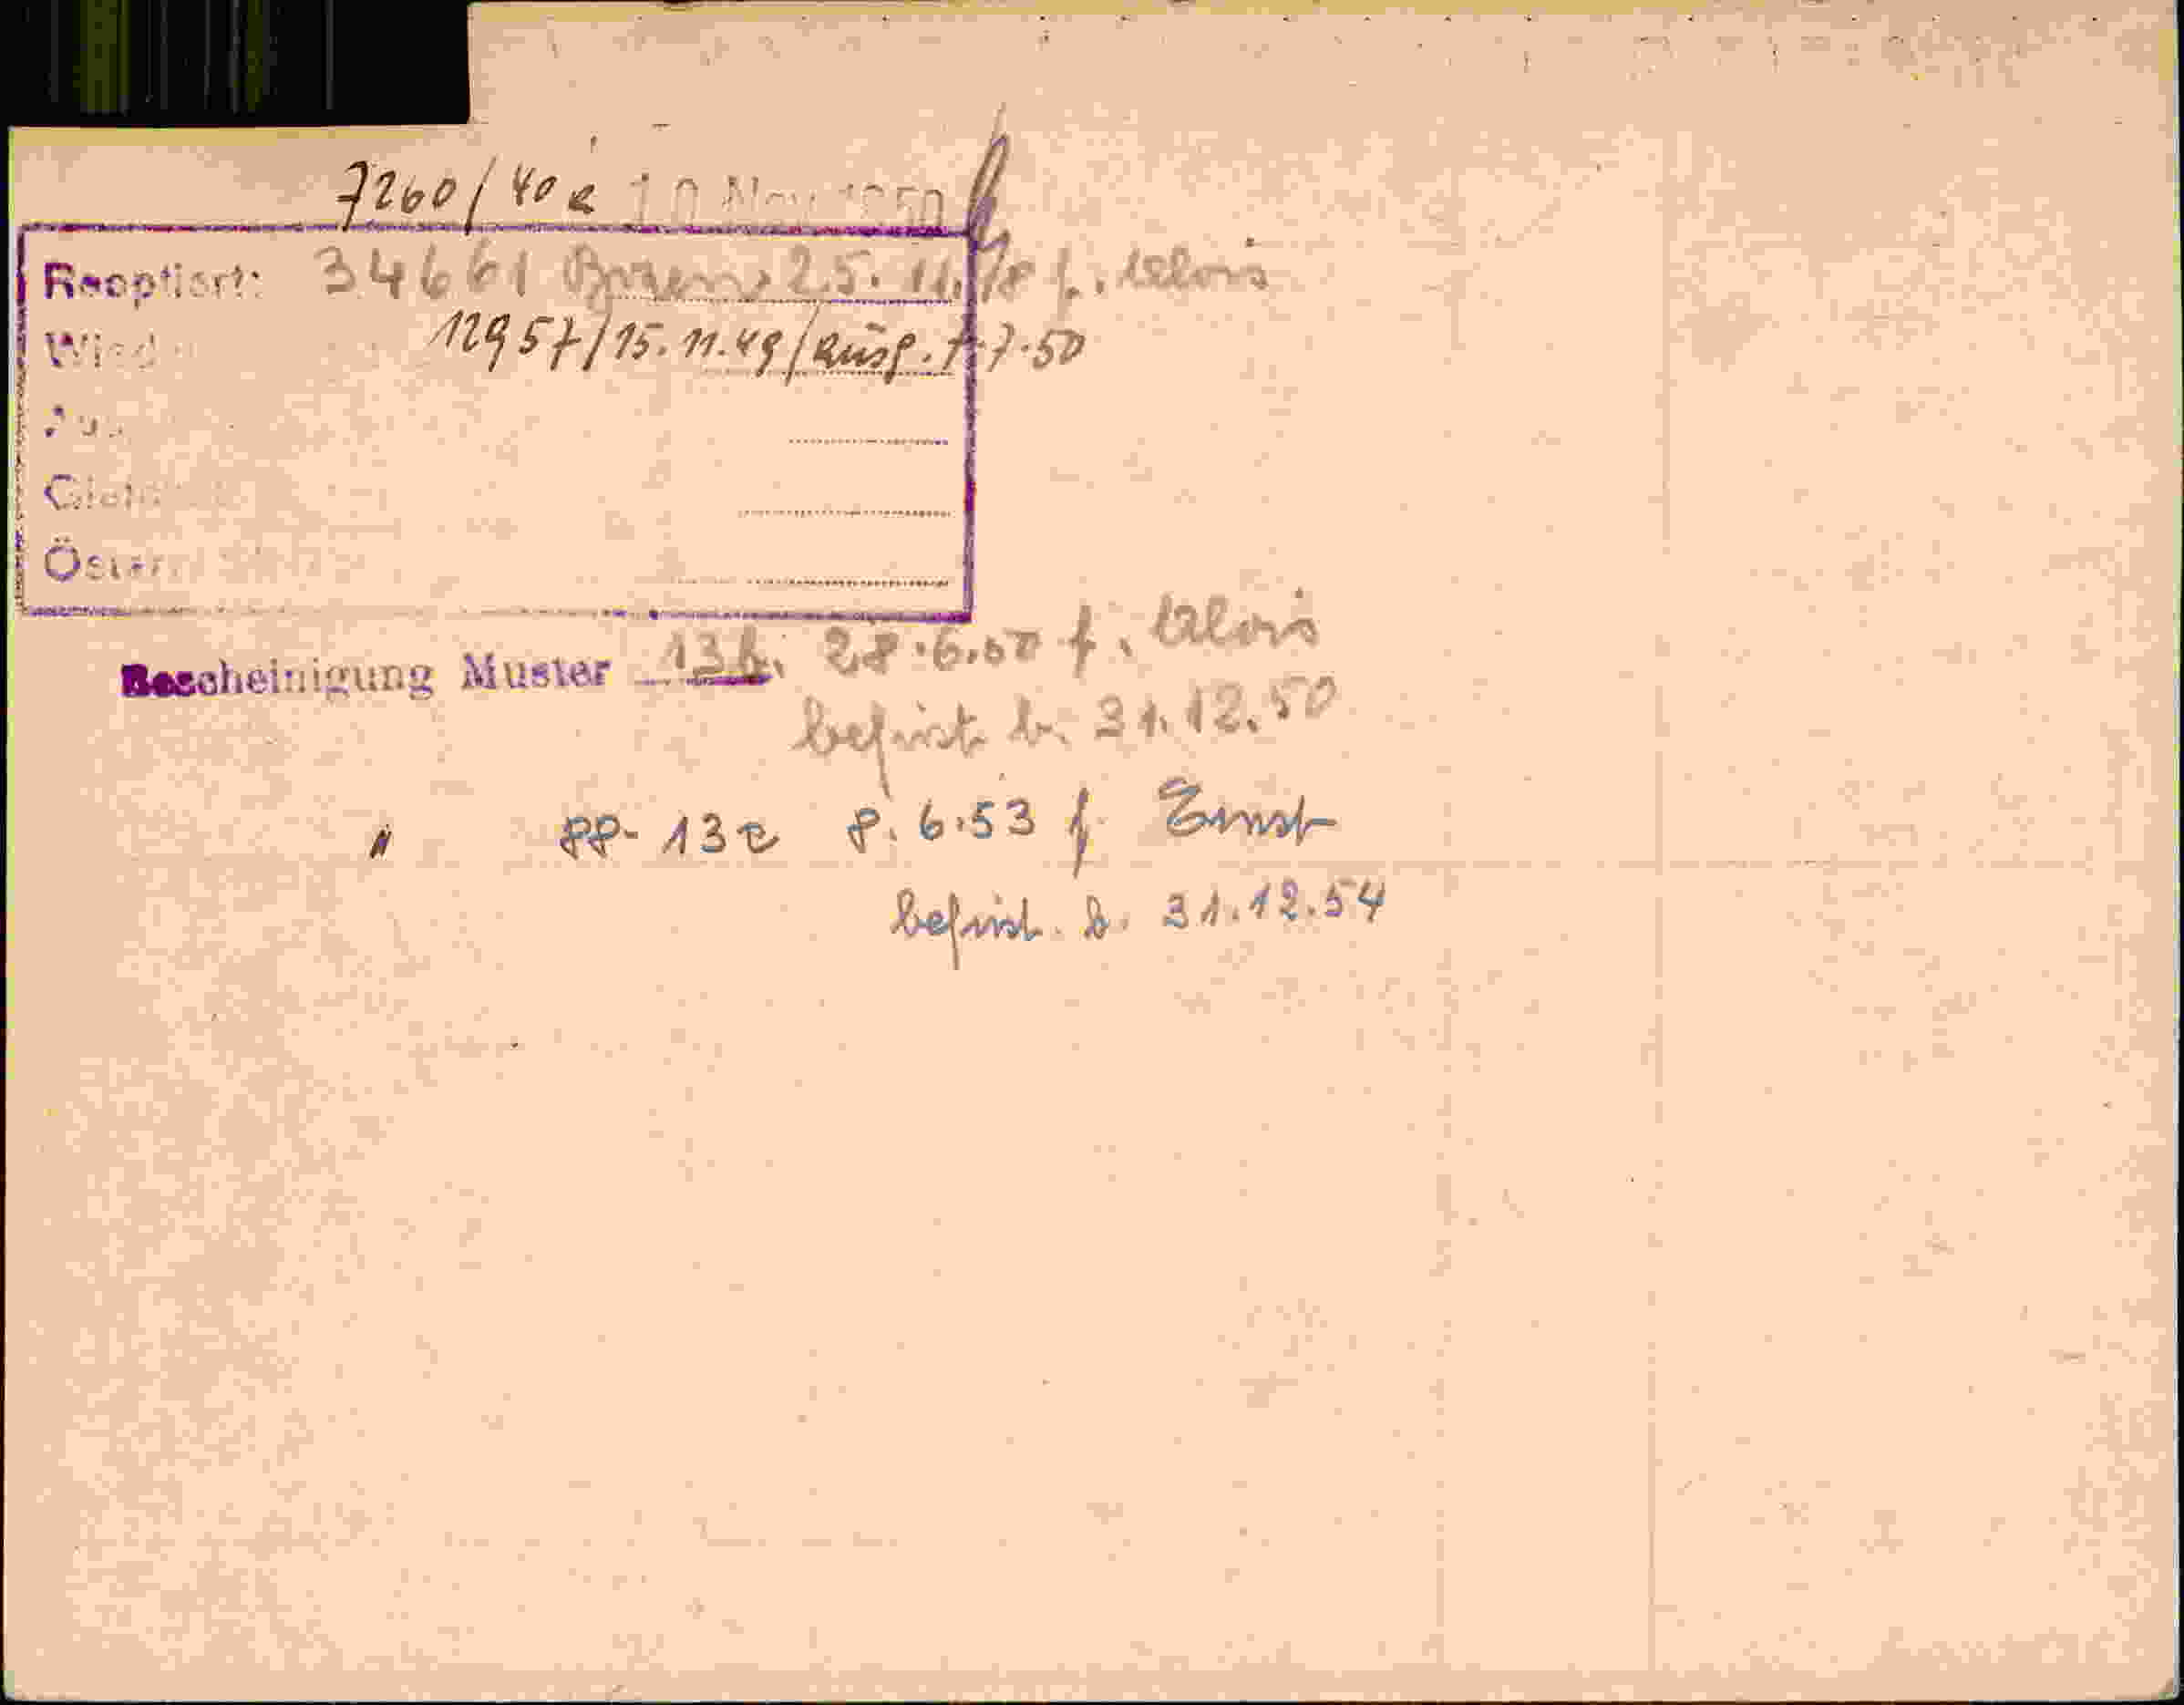 7260/40e 10 Nov 1950
Reoptiert: 34661 Bozen, 25. 11. 48 f. Alois
12957/15.11.49/ausg. 7.7.50
Bescheinigung Muster 13b. 28.6.50 f. Alois
befrist b. 31.12.50
" 13e 8.6.53 f. Ernst
befrist. b. 31.12.54